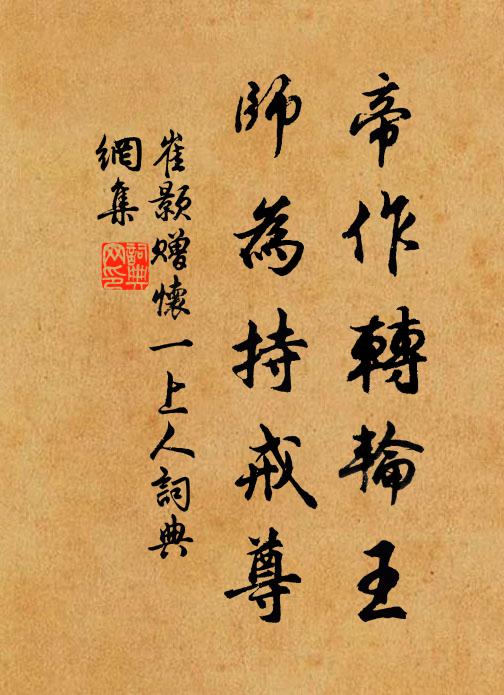 帝作轉輪王
師為持戒尊
崔顥贈懷一上人詞典
網集
詞典網印